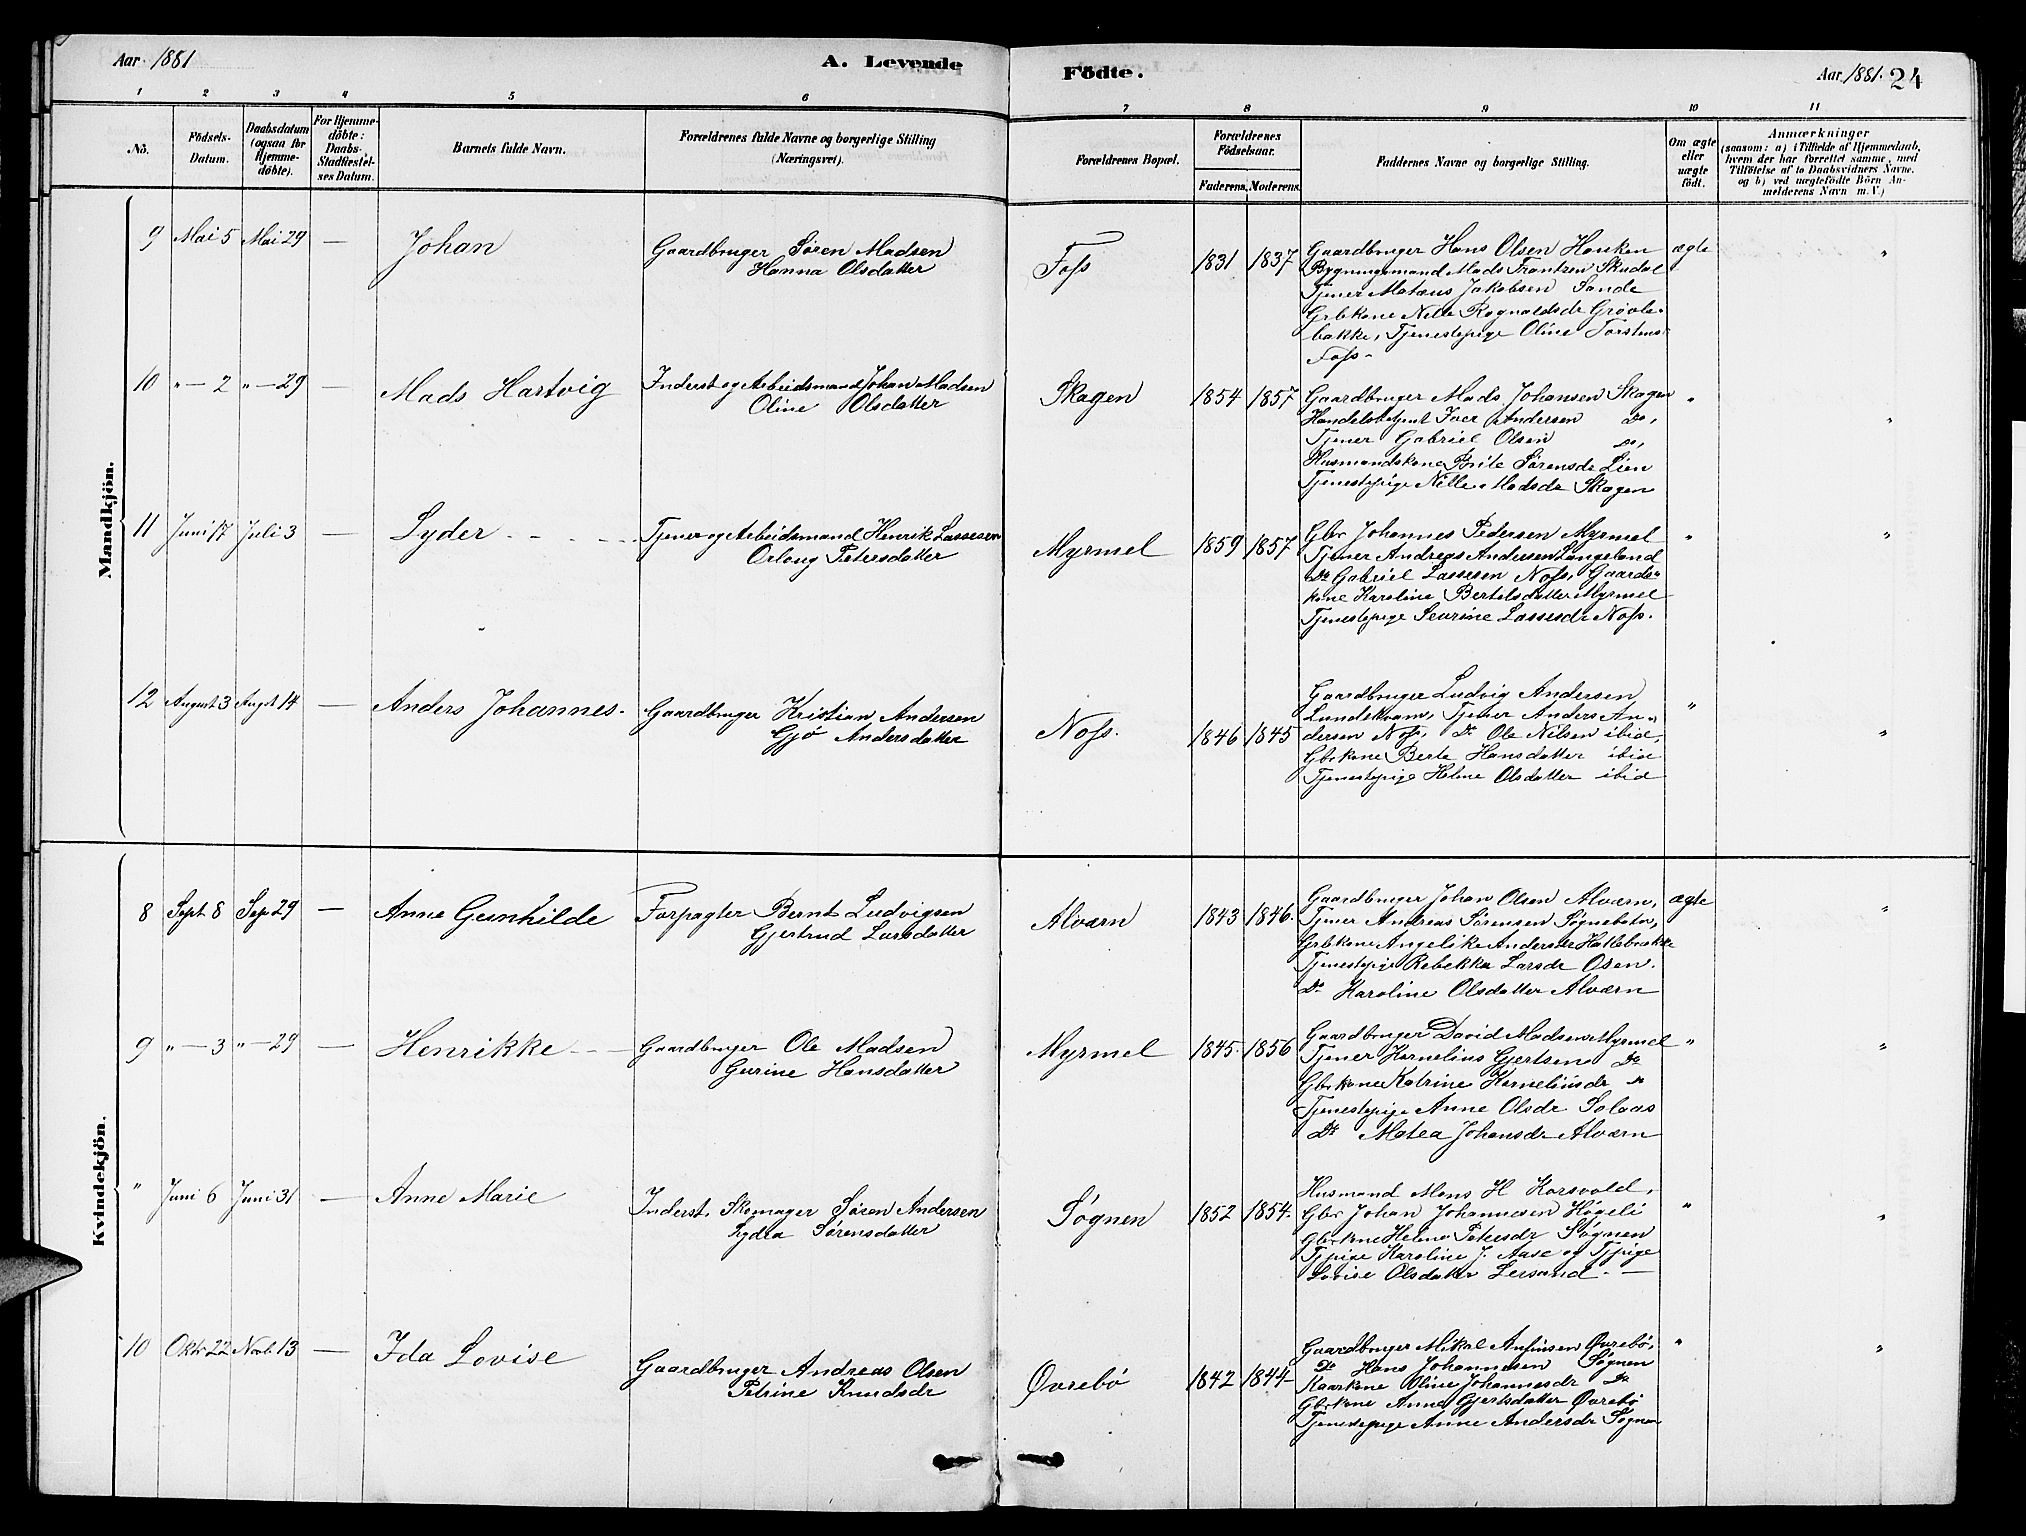 Aar 1881
A. Levende
Födte.
Aar 1881.
24
1 2 3 4 5 6 7 8 9 10 11
No.
Födsels-
Datum.
Daabsdatum
(ogsaa for
Hjemme-
döbte).
For Hjemme-
döbte:
Daabs-
Stadfæstel-
ses Datum.
Barnets fulde Navn.
Forældrenes fulde Navne og borgerlige Stilling
(Næringsvei).
Forældrenes Bopæl.
Forældrenes
Födselsaar.
Faderens. Moderens.
Faddernes Navne og borgerlige Stilling.
Om ægte
eller
uægte
født.
Anmærkninger
(saasom: a) i Tilfælde af Hjemmedaab,
hvem der har forrettet samme, med
Tilföielse af to Daabsvidners Navne.
og b) ved uægtefödte Börn An-
melderens Navn m. V.)
Mandkjön.
9 Mai 5 Mai 29 — Johan
Gaardbruger Søren Madsen
Hanna Olsdatter
Foss 1831 1837
Gaardbruger Hans Olsen Hauken
Bygningsmand Mads Frantzen Skudal
Tjener Matæus Jakobsen Sande
Grbkone Nille Ragnvaldsdr Grövle-
bakke, Tjenestepige Oline Torstens
Foss-
ægte "
10 " — 2 " — 29 — Mads Hartvig
Inderst og Arbeidsmand Johan Madsen
Oline Olsdatter
Skagen 1854 1857
Gaardbruger Mads Johansen Skagen
Handelsbetjent Iver Andersen Do,
Tjener Gabriel Olsen Do,
Husmandskone Brite Sørensdr Lien
Tjenestepige Nille Madsdr Skagen
" "
11 Juni 17 Juli 3 — Syder
Tjener og Arbeidsmand Henrik Lassesen
Orloug Petersdatter
Myrmel 1859 1857
Gbr Johannes Pedersen Myrmel
Tjener Andreas Andersen Langeland
Do Gabriel Lassesen Noss, Gaards-
kone Karoline Bertelsdatter Myrmel
Tjenestepige Severine Lassesdr Noss.
" "
12 August 3 Augst 14 — Anders Johannes
Gaardbruger Kristian Andersen
Gjø Andersdatter
Noss. 1846 1845
Gaardbruger Ludvig Andersen
Lundekvam, Tjener Anders An-
dersen Noss, Do Ole Nilsen ibid,
Gbrkone Berte Hansdatter ibid
Tjenestepige Helene Olsdatter ibid
" "
Kvindekjön.
8 Sept 8 Sep 29 — Anne Gunhilde
Forpagter Bernt Ludvigsen
Gjertrud Larsdatter
Alværn 1843 1846.
Gaardbruger Johan Olsen Alværn,
Tjener Andreas Sørensen Søgnebotn,
Grbkone Angelike Andersdr Hatlebrække
Tjenestepige Rebekka Larsdr Osen.
Do Karoline Olsdatter Alværn
ægte "
9 " — 3 " — 29 — Henrikke
Gaardbruger Ole Madsen
Gurine Hansdatter
Myrmel 1845 1856
Gaardbruger David Madsen Myrmel
Tjener Kornelius Gjertsen Do
Gbrkone Katrine Korneliusdr Do
Tjenestepige Anne Olsdr Solaas
Do Matea Johansdr Alværn
" "
" Juni 6 Juni 31 — Anne Marie
Inderst. Skomager Søren Andersen
Lydia Sørensdatter
Søgnen 1852 1854.
Husmand Mons H Korsvold,
Gbr Johan Johannesen Høgeli
Gbrkone Helene Petersdr Søgnen
Tjpige Karoline J. Aase og Tjpige
Lovise Olsdatter Leirsand —
" "
10 Oktr 22 Novb. 13 — Ida Lovise
Gaardbruger Andreas Olsen
Petrine Knudsdr
Øvrebø 1842 1844
Gaardbruger Mikal Anfinsen Øvrebø,
Do Hans Johannesen Søgnen
Kaarkone Oline Johannesdr Do
Gbrkone Anne Gjertsdatter Øvrebø
Tjenestepige Anne Andersdr Søgnen
" "